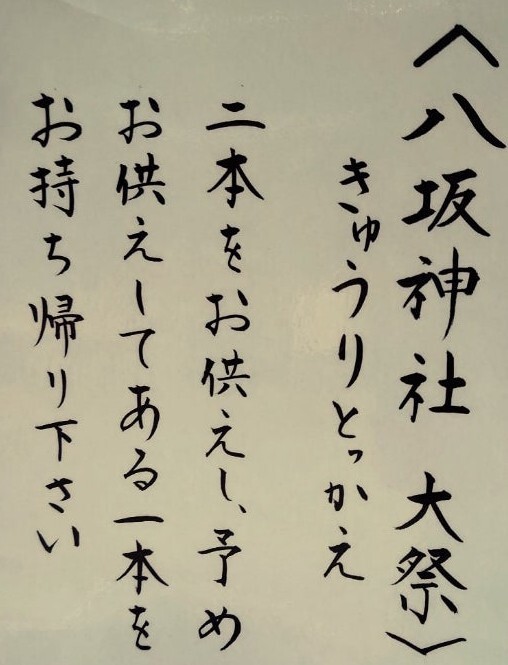 〈八坂神社 大祭〉
きゅうりとっかえ
二本をお供えし、予め
お供えしてある一本を
お持ち帰り下さい